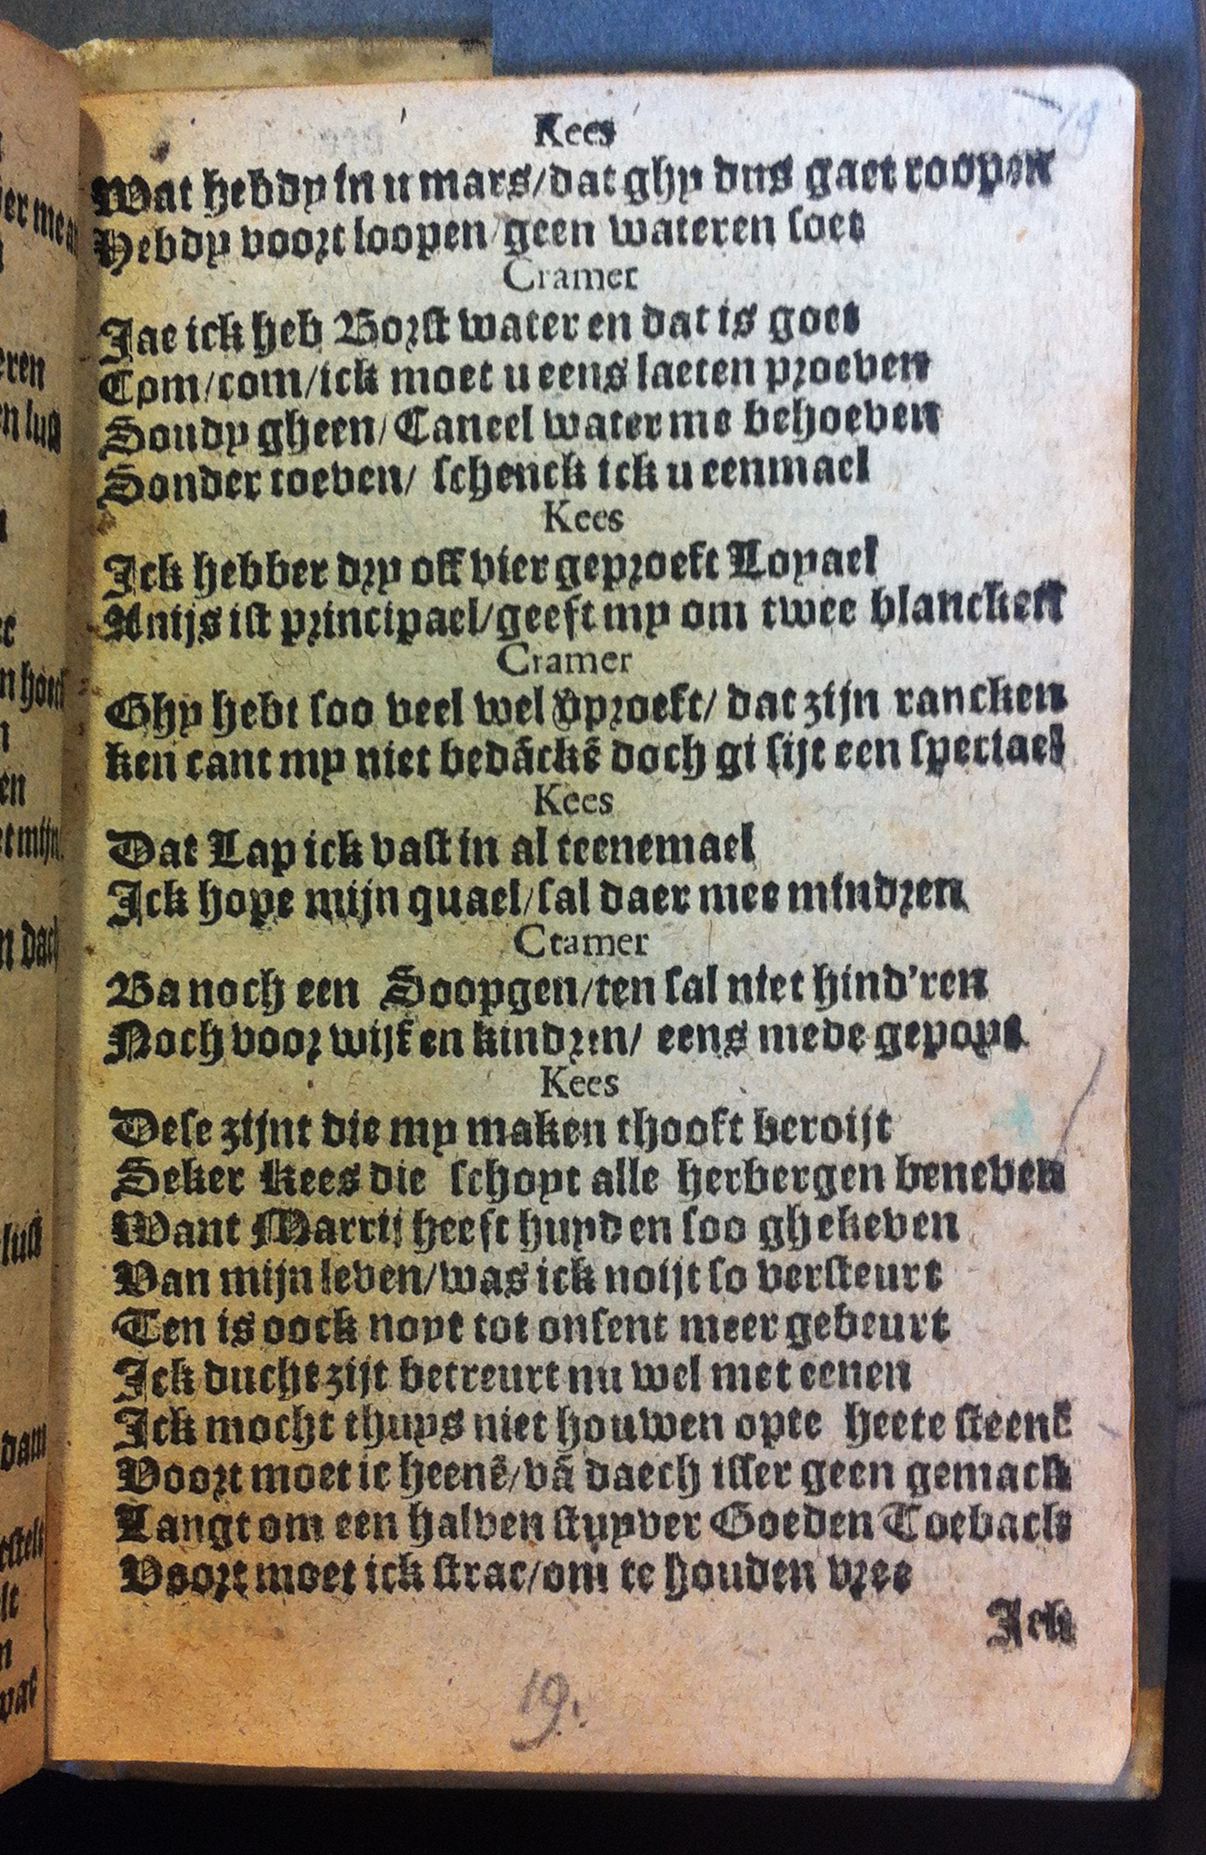 Kees
Wat hebdy in u mars/dat ghy dus gaet roopen
Hebdy voort loopen/geen wateren soet
Cramer
Jae ick heb Borst water en dat is goet
Com/com/ick moet u eens laeten proeven
Soudy gheen/Caneel water me behoeven
Sonder toeven/ schenck ick u eenmael
Kees
Ick hebber dry off vier geproeft Loyael
Anijs ist principael/geeft my om twee blancken
Cramer
Ghy hebt soo veel wel geproeft/ dat zijn rancken
ken cant my niet bedãckẽ doch gi sijt een spectael
Kees
Dat Lap ick vast in al teenemael
Ick hope mijn quael/sal daer mee mindren
Ctamer
Ba noch een Soopgen/ten sal niet hind'ren
Noch voor wijf en kindren/ eens mede gepoyt
Kees
Dese zijnt die my maken thooft beroijt
Seker Kees die schoyt alle herbergen beneven
Want Marrij heeft huyden soo ghekeven
Van mijn leven/was ick noijt so versteurt
Ten is oock noyt tot onsent meer gebeurt
Ick ducht zijt betreurt nu wel met eenen
Ick mocht thuys niet houwen opte heete steenē
Voort moet ic heenẽ/vã daech isser geen gemack
Langt om een halven stuyver Goeden Toeback
Voort moet ick strac/om te houden vree
Ick
19.
19